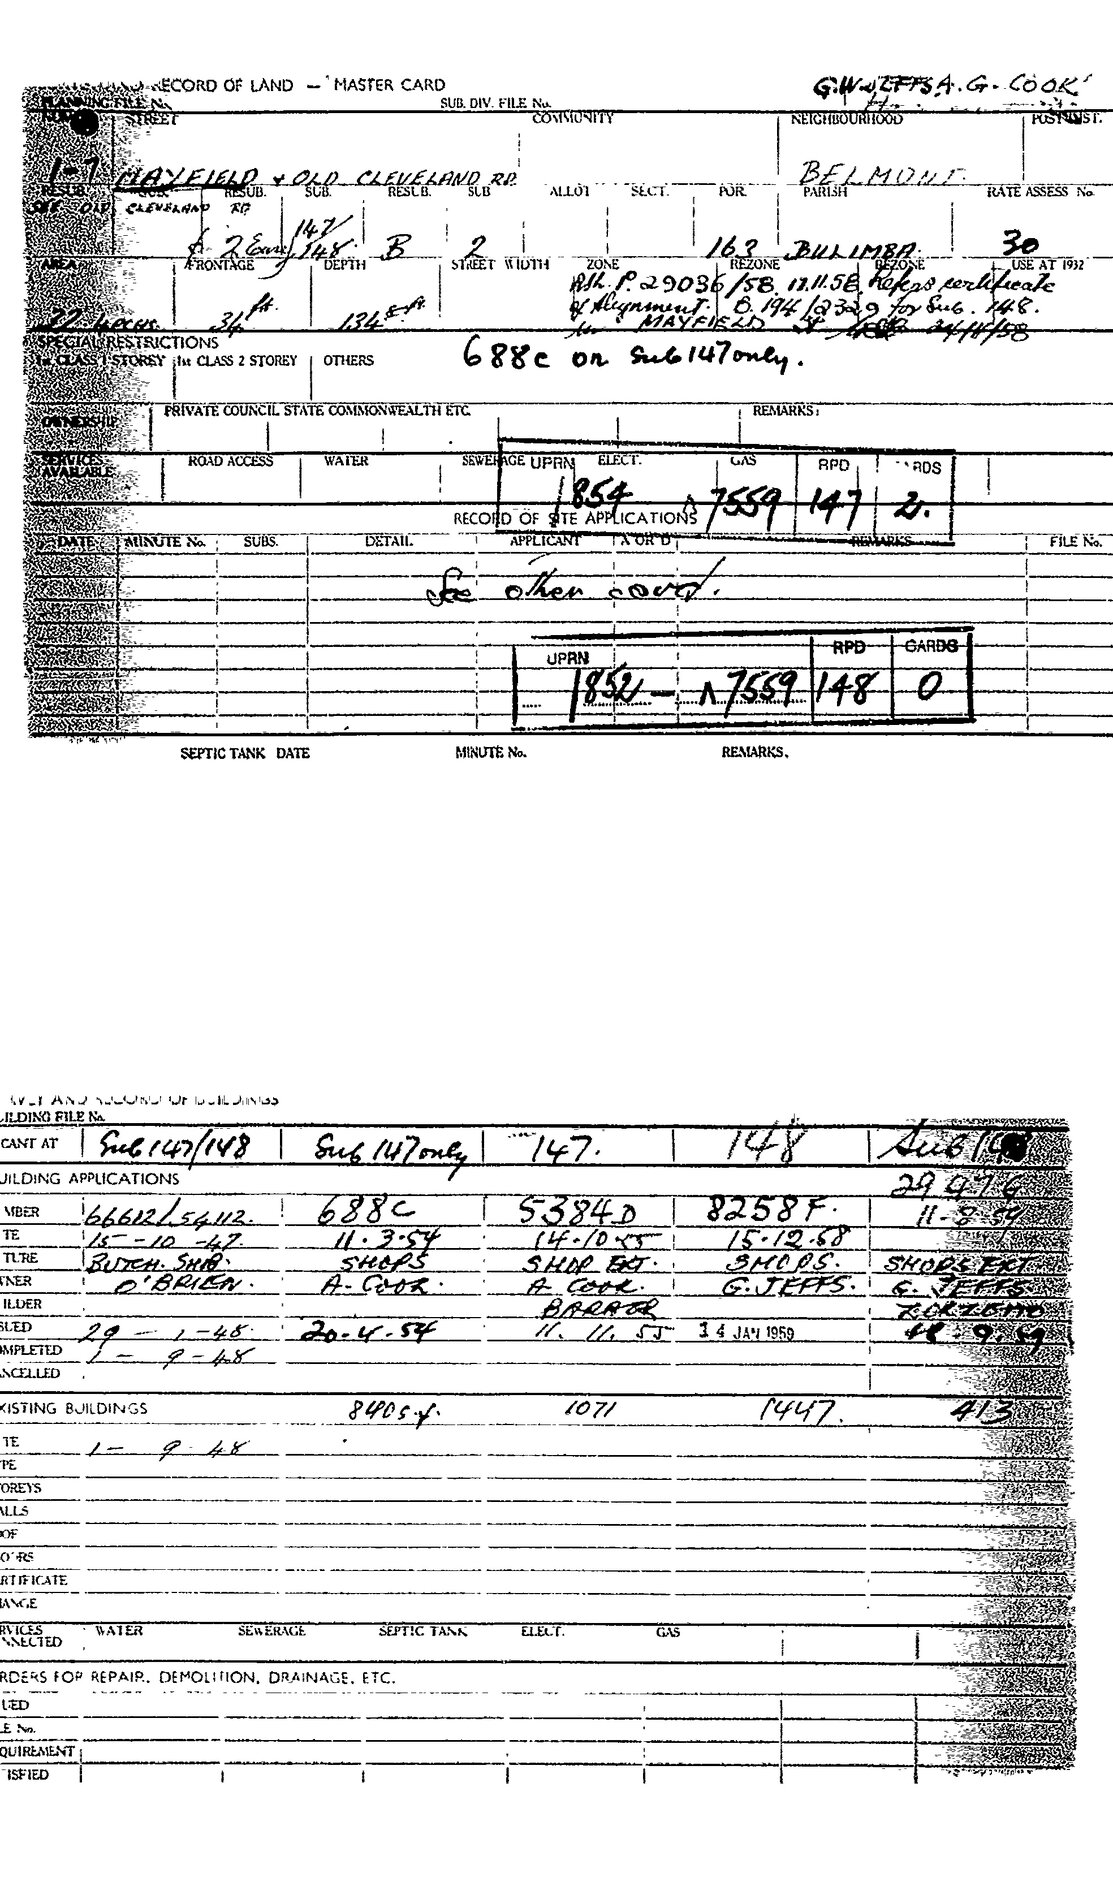 RECORD OF LAND — MASTER CARD
G.W. JEFFS A. G. COOK
PLANNING FILE No. SUB. DIV. FILE No.
STREET COMMUNITY NEIGHBOURHOOD POST DIST.
1-7 MAYFIELD & OLD CLEVELAND RD. BELMONT.
RESUB. SUB. RESUB. SUB. RESUB. SUB ALLOT SECT. POR. PARISH RATE ASSESS No.
SEE OLD CLEVELAND RD
147/
& 2 148 B 2 163 BULIMBA. 30
AREA FRONTAGE DEPTH STREET WIDTH ZONE REZONE REZONE USE AT 1932
P. 29036/58 17.11.58 Refers certificate
of Alignment. B. 194/2329 for Sub. 148.
34 ft. 134 ft. MAYFIELD St 24/11/58
SPECIAL RESTRICTIONS
1st CLASS 1 STOREY 1st CLASS 2 STOREY OTHERS
688c on Sub 147 only.
OWNERSHIP PRIVATE COUNCIL STATE COMMONWEALTH ETC. REMARKS:
SERVICES AVAILABLE ROAD ACCESS WATER SEWERAGE ELECT. GAS
UPRN RPD CARDS
1854 7559 147 2.
RECORD OF SITE APPLICATIONS
DATE MINUTE No. SUBS. DETAIL. APPLICANT A OR D REMARKS FILE No.
See other card.
UPRN RPD CARDS
1852 — 7559 148 0
SEPTIC TANK DATE MINUTE No. REMARKS.
AND RECORD OF BUILDINGS
ILDING FILE No.
CANT AT Sub 147/148 Sub 147 only 147. 148 Sub 148
UILDING APPLICATIONS 29976
MBER 66612/54112. 688C 5384D 8258F. 11-8-59
TE 15-10-47. 11.3.54 14-10-55 15.12.58
TURE BUTCH. SHOP. SHOPS SHOP EXT. SHOPS. SHOPS EXT
NER O'BRIEN. A. COOK. A COOK. G. JEFFS. G. JEFFS.
ILDER
SUED 29-1-48. 20.4.54 11. 11. 55 14 JAN 1959
OMPLETED 1-9-48
ANCELLED
XISTING BUILDINGS 840 s.f. 1071 1447. 413
TE 1-9-48
PE
TOREYS
ALLS
OF
ORS
RTIFICATE
HANGE
RVICES NNECTED WATER SEWERAGE SEPTIC TANK ELECT. GAS
RDERS FOR REPAIR, DEMOLITION, DRAINAGE, ETC.
UED
LE No.
QUIREMENT
ISFIED